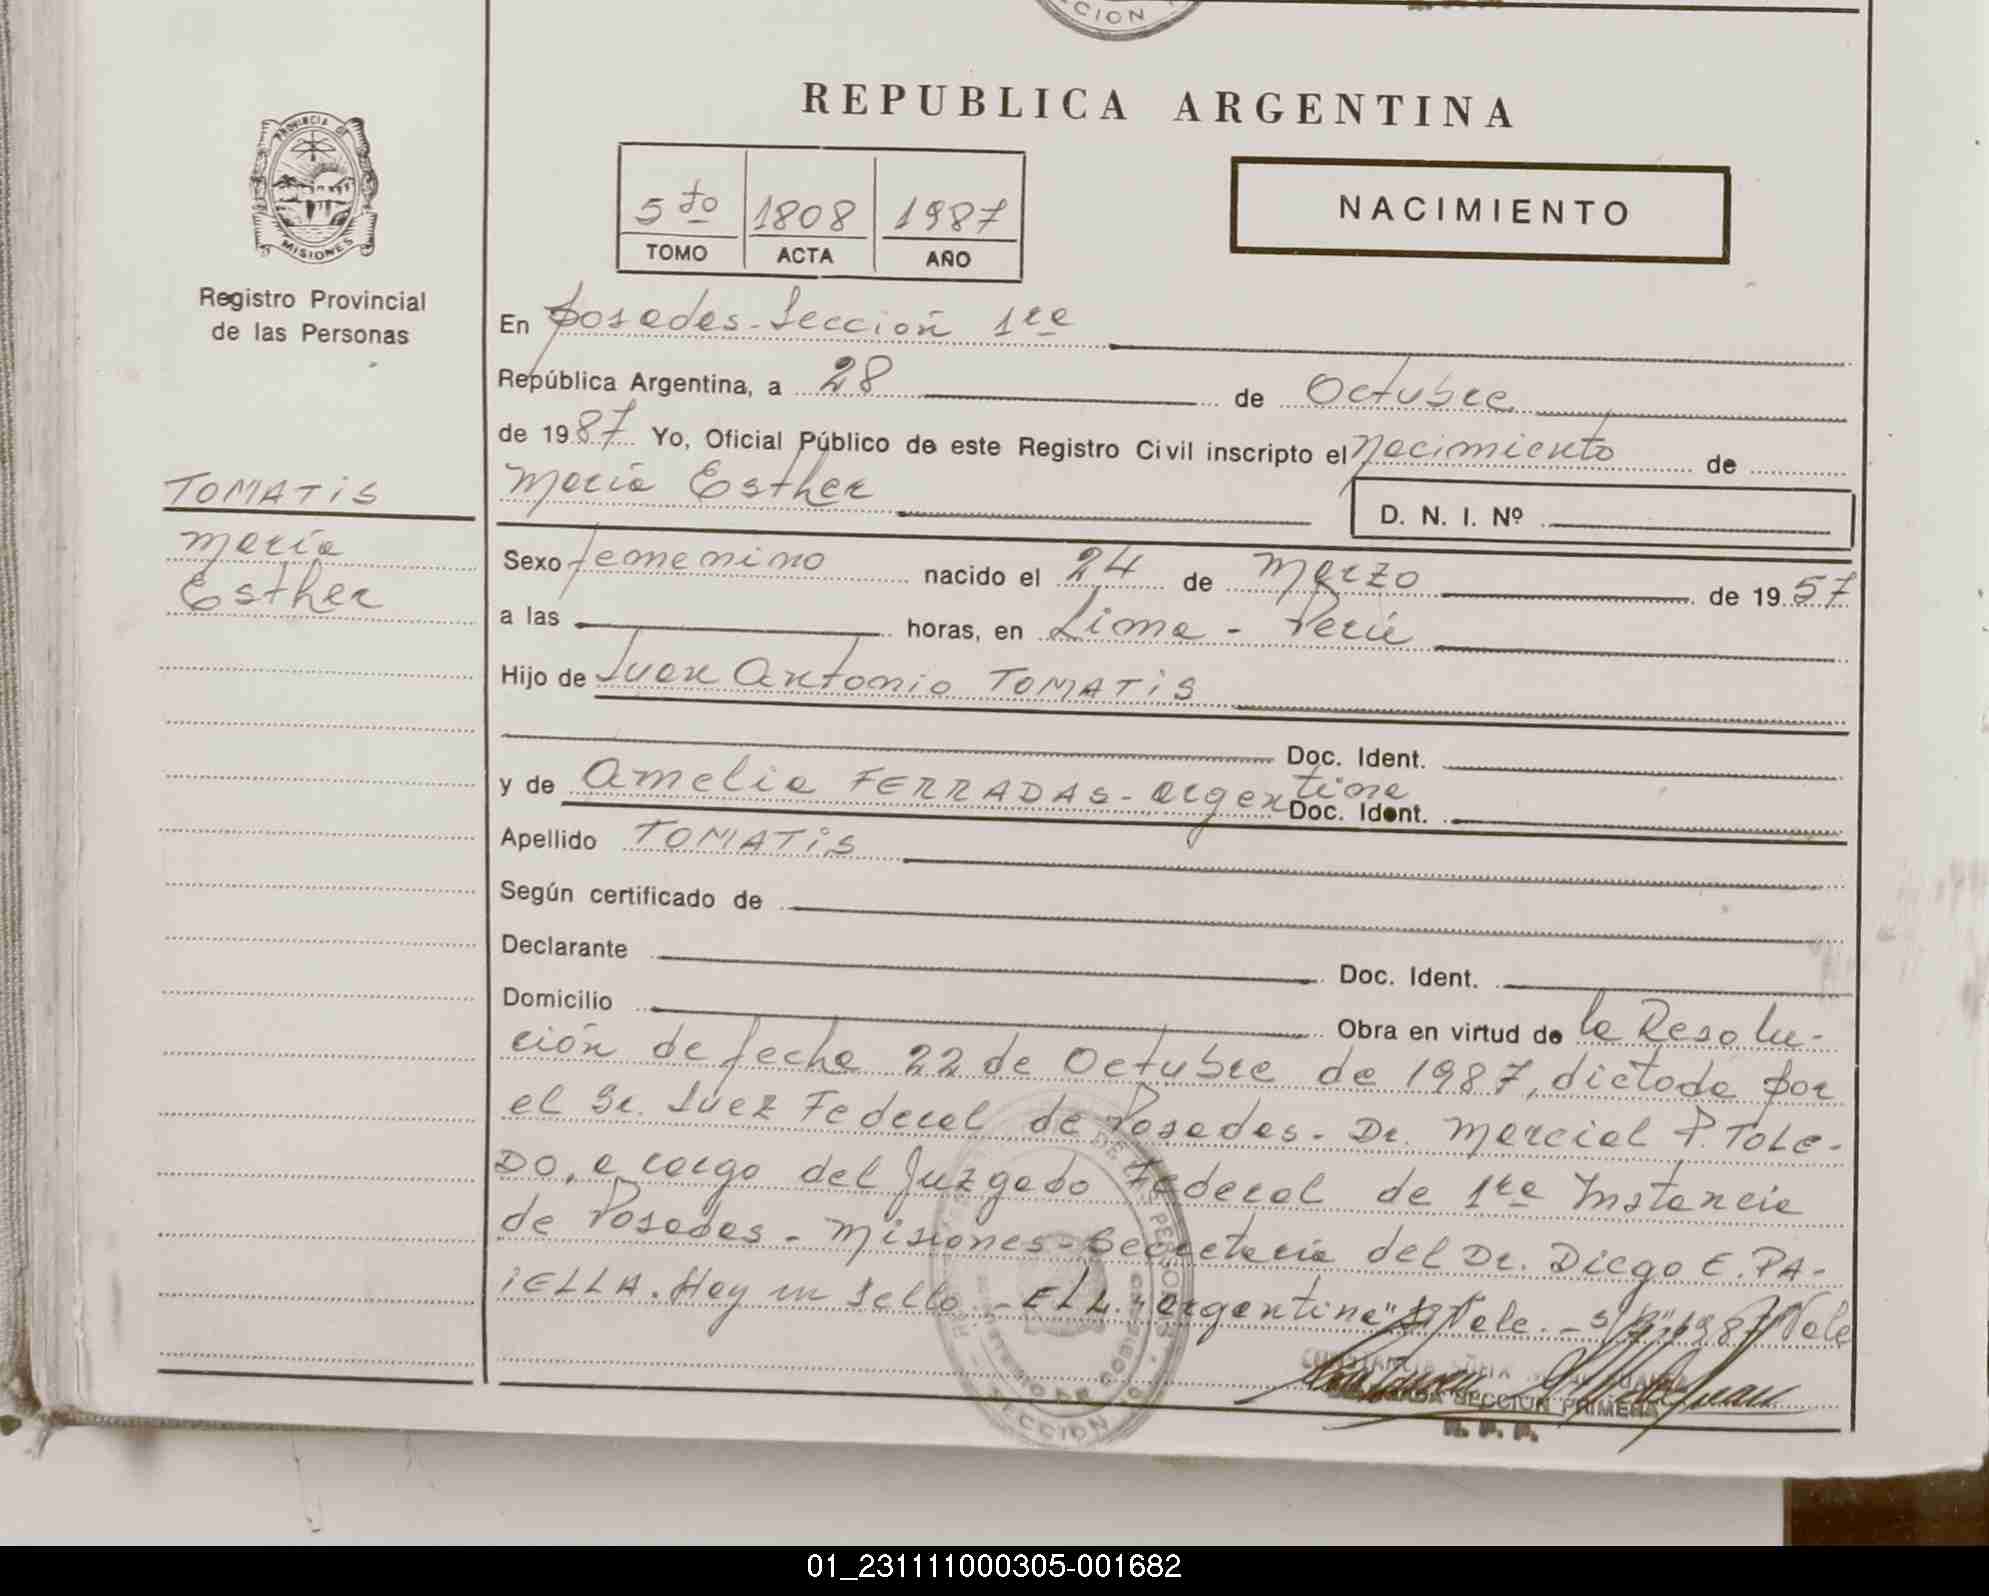 CCION
REPUBLICA ARGENTINA
PROVINCIA DE
MISIONES
Registro Provincial
de las Personas
5to 1808 1987
TOMO ACTA AÑO
NACIMIENTO
En Posadas - Sección 1ra
República Argentina, a 28 de Octubre
de 1987 Yo, Oficial Público de este Registro Civil inscripto el Nacimiento de
María Esther
D. N. I. Nº
TOMATiS
María
Esther
Sexo femenino nacido el 24 de Marzo de 1957
a las horas, en Lima - Perú
Hijo de Juan Antonio TOMATiS
Doc. Ident.
y de Amelia FERRADAS - argentina
Doc. Ident.
Apellido TOMATiS
Según certificado de
Declarante Doc. Ident.
Domicilio Obra en virtud de la Resolu-
ción de fecha 22 de Octubre de 1987, dictada por
el Sr. Juez Federal de Posadas - Dr. Marcial P. TOLE-
DO, a cargo del Juzgado Federal de 1ra Instancia
de Posadas - Misiones - Secretaría del Dr. Diego E. PA-
iELLA. Hay un sello. - E/L. "argentina" Vale. - 1987 Vale
SECCION PRIMERA
R. P. P.
SECCION
01_231111000305-001682